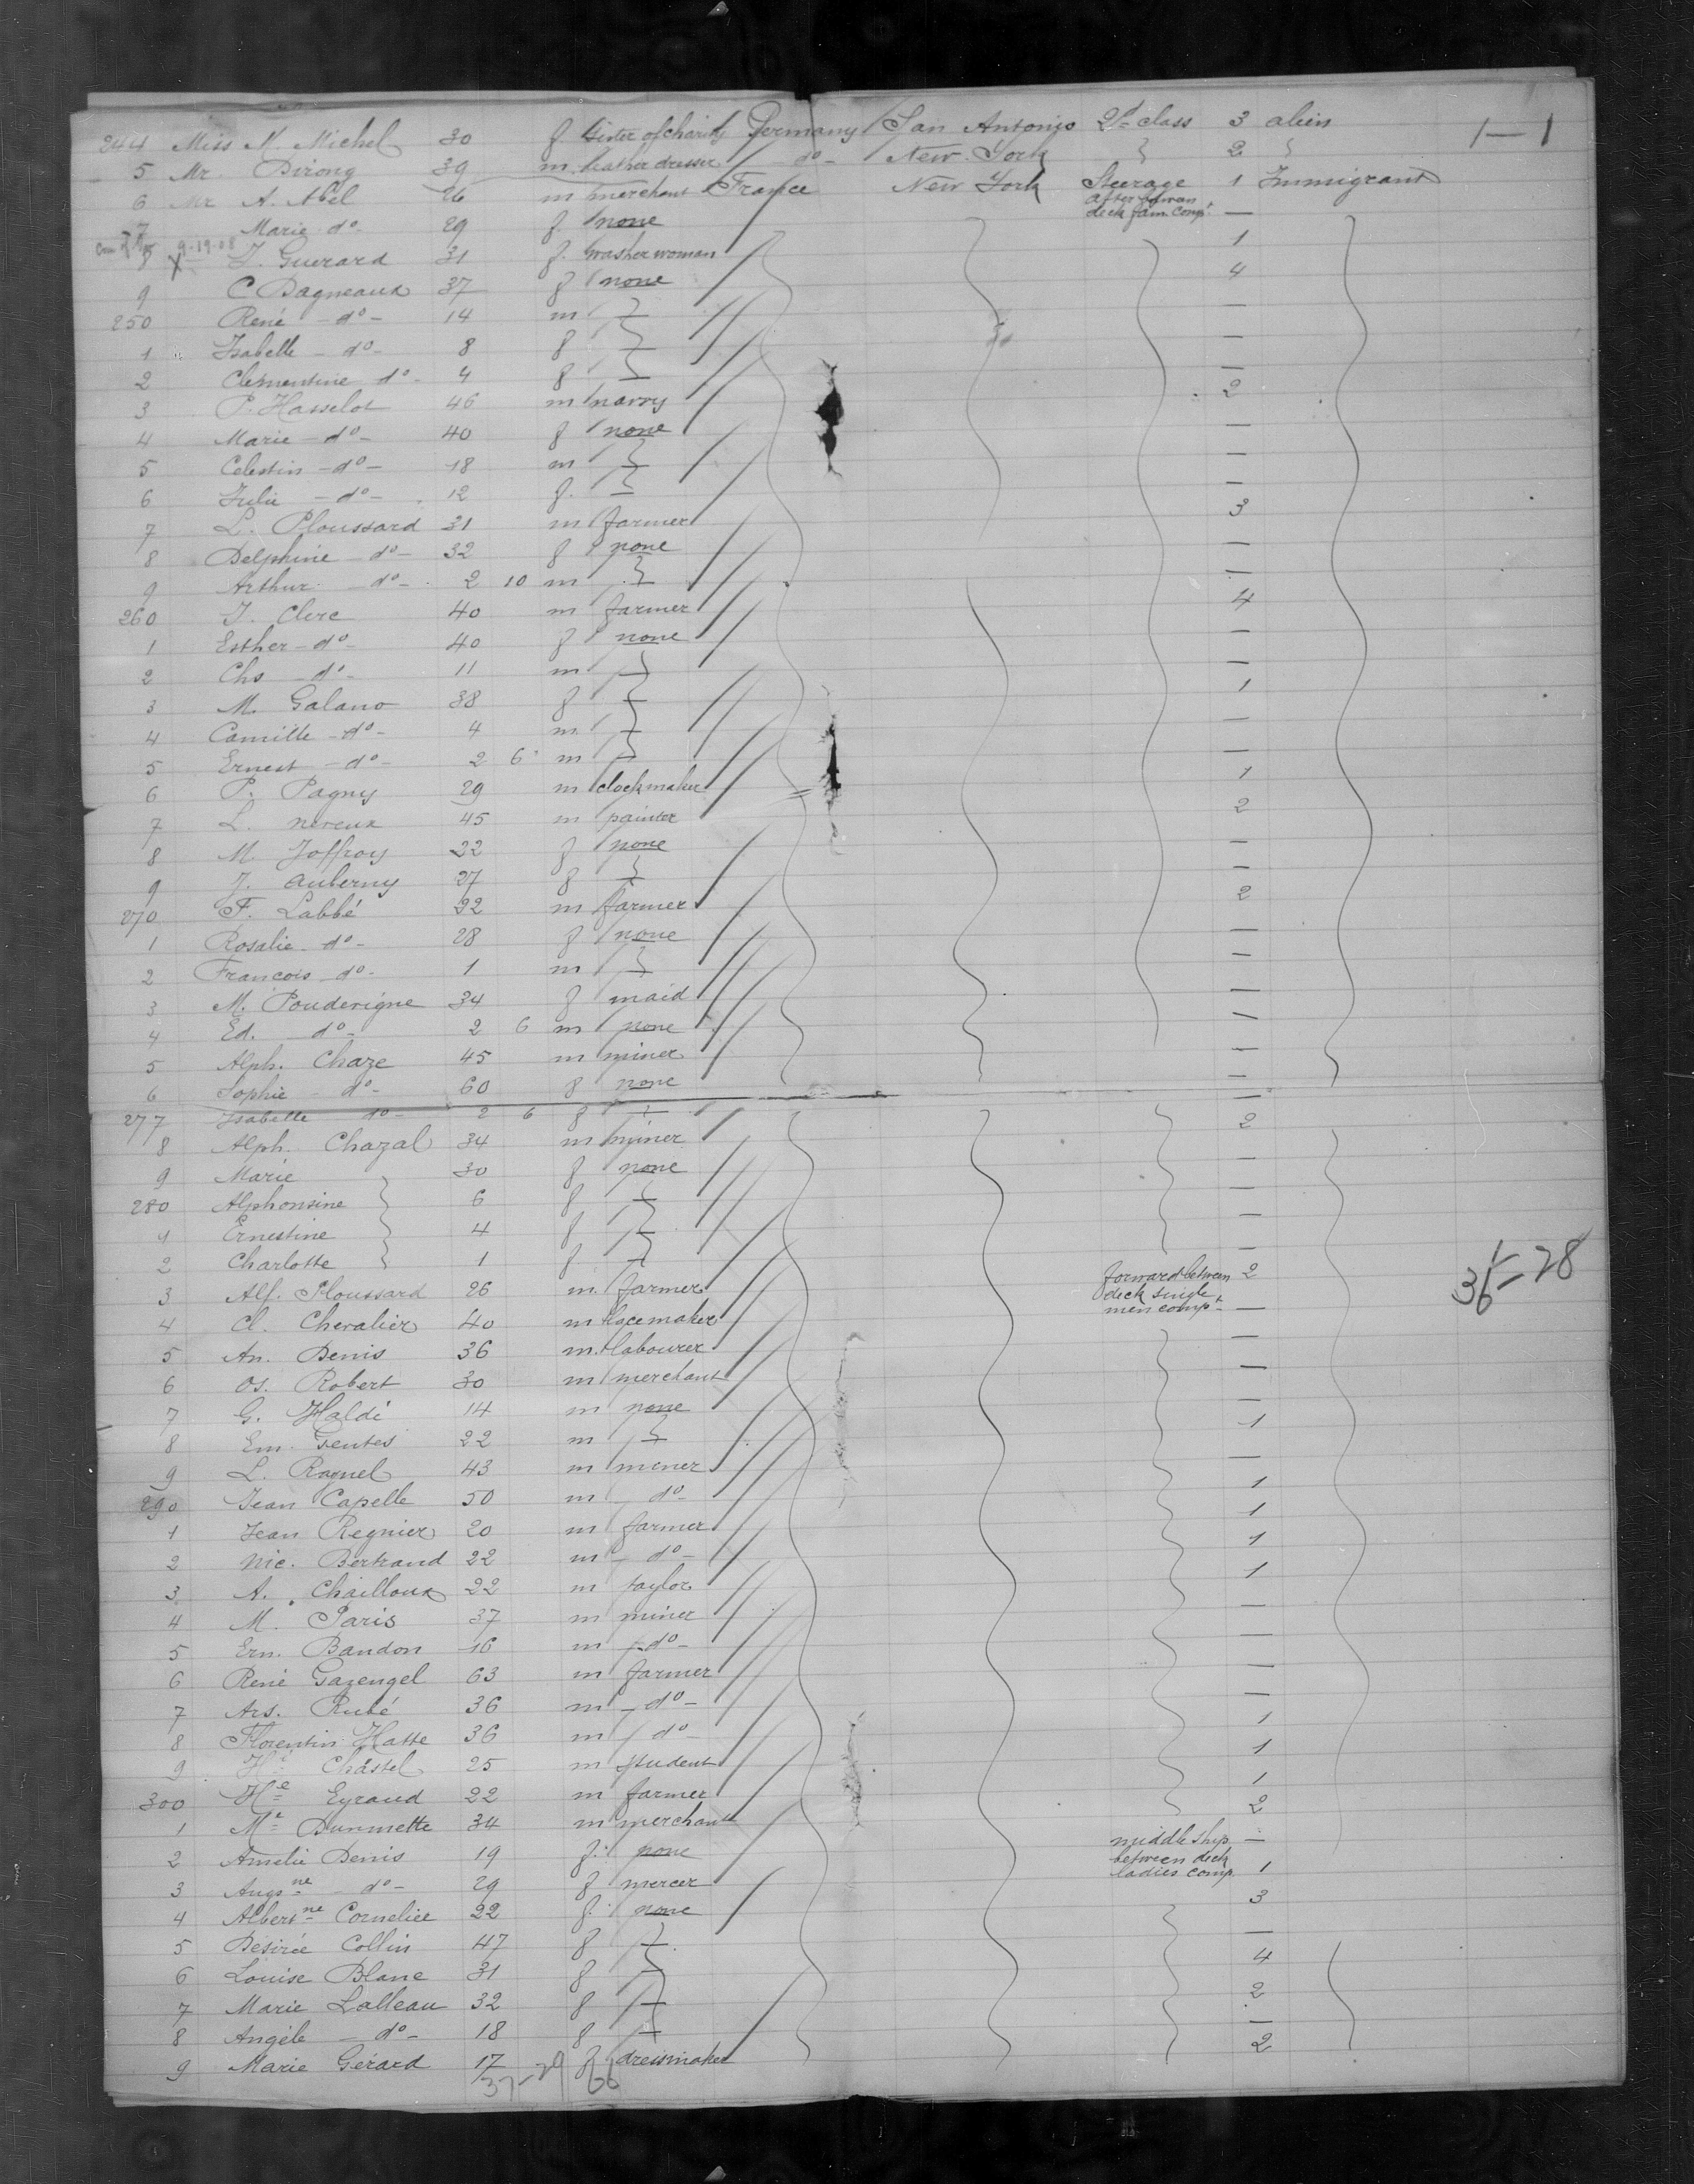 244 Miss M. Michel 30 f sister of charity Germany San Antonio 2d class 3 alien 1—1
5 Mr. Dirong 39 m leather dresser — do — New York 2
6 Mr A. Abel 26 m merchant France New York Steerage 1 Immigrant
after betwen deck fam. compt.
7 Marie do 29 f none —
9-19-08
8 X J. Guerard 31 f. washerwoman 1
9 C Dagneaux 37 f none 4
250 René — do — 14 m —
1 Isabelle — do — 8 f —
2 Clementine do - 4 f —
3 P. Hasselot 46 m navvy 2
4 Marie — do — 40 f none —
5 Celestin — do — 18 m —
6 Julie — do — 12 f. —
7 L. Ploussard 31 m farmer 3
8 Delphine — do — 32 f none —
9 Arthur — do — 2 10 m —
260 J. Clerc 40 m farmer 4
1 Esther — do — 40 f none —
2 Chs — do — 11 m —
3 M. Galano 38 f 1
4 Camille — do — 4 m —
5 Ernest — do — 2 6 m —
6 P. Pagny 29 m clockmaker 1
7 L. nereux 45 m painter 2
8 M. Joffroy 22 f none —
9 J. Auberny 27 f —
270 F. Labbé 32 m farmer 2
1 Rosalie — do — 28 f none —
2 Francois — do - 1 m —
3 M. Pouderigne 34 f maid —
4 Ed. do — 2 6 m none —
5 Alph. Chaze 45 m miner —
6 Sophie do — 60 f none —
277 Isabelle do — 2 6 f —
8 Alph. Chazal 34 m miner 2
9 Marie 30 f none —
280 Alphonsine 6 f —
1 Ernestine 4 f —
2 Charlotte 1 f —
3 Alf. Ploussard 26 m. farmer forward between deck single men compt. 2
4 Cl. Chevalier 40 m lacemaker —
5 An. Denis 36 m. labourer —
6 Os. Robert 30 m merchant —
7 G. Haldi 14 m none —
8 Em. Gentes 22 m 1
9 L. Raquel 43 m miner —
290 Jean Capelle 50 m do — 1
1 Jean Regnier 20 m farmer 1
2 Nic. Bertrand 22 m — do — 1
3 A. Chailloux 22 m taylor 1
4 M. Paris 37 m miner —
5 Ern. Bandon 16 m — do — —
6 René Gazengel 63 m farmer —
7 Ars. Rubé 36 m — do — —
8 Florentin Hatte 36 m do — 1
9 Chastel 25 m student 1
300 He Eyraud 22 m farmer 1
1 Me Dummette 34 m merchant 2
2 Amelie Denis 19 f. none middle ship between deck ladies comp. —
3 Augsne — do — 29 f mercer 1
4 Albertne Corneliee 22 f. none 3
5 Désirée Collin 47 f —
6 Louise Blanc 31 f 4
7 Marie Lalleau 32 f 2
8 Angèle — do — 18 f —
9 Marie Gérard 17 f dressmaker 2